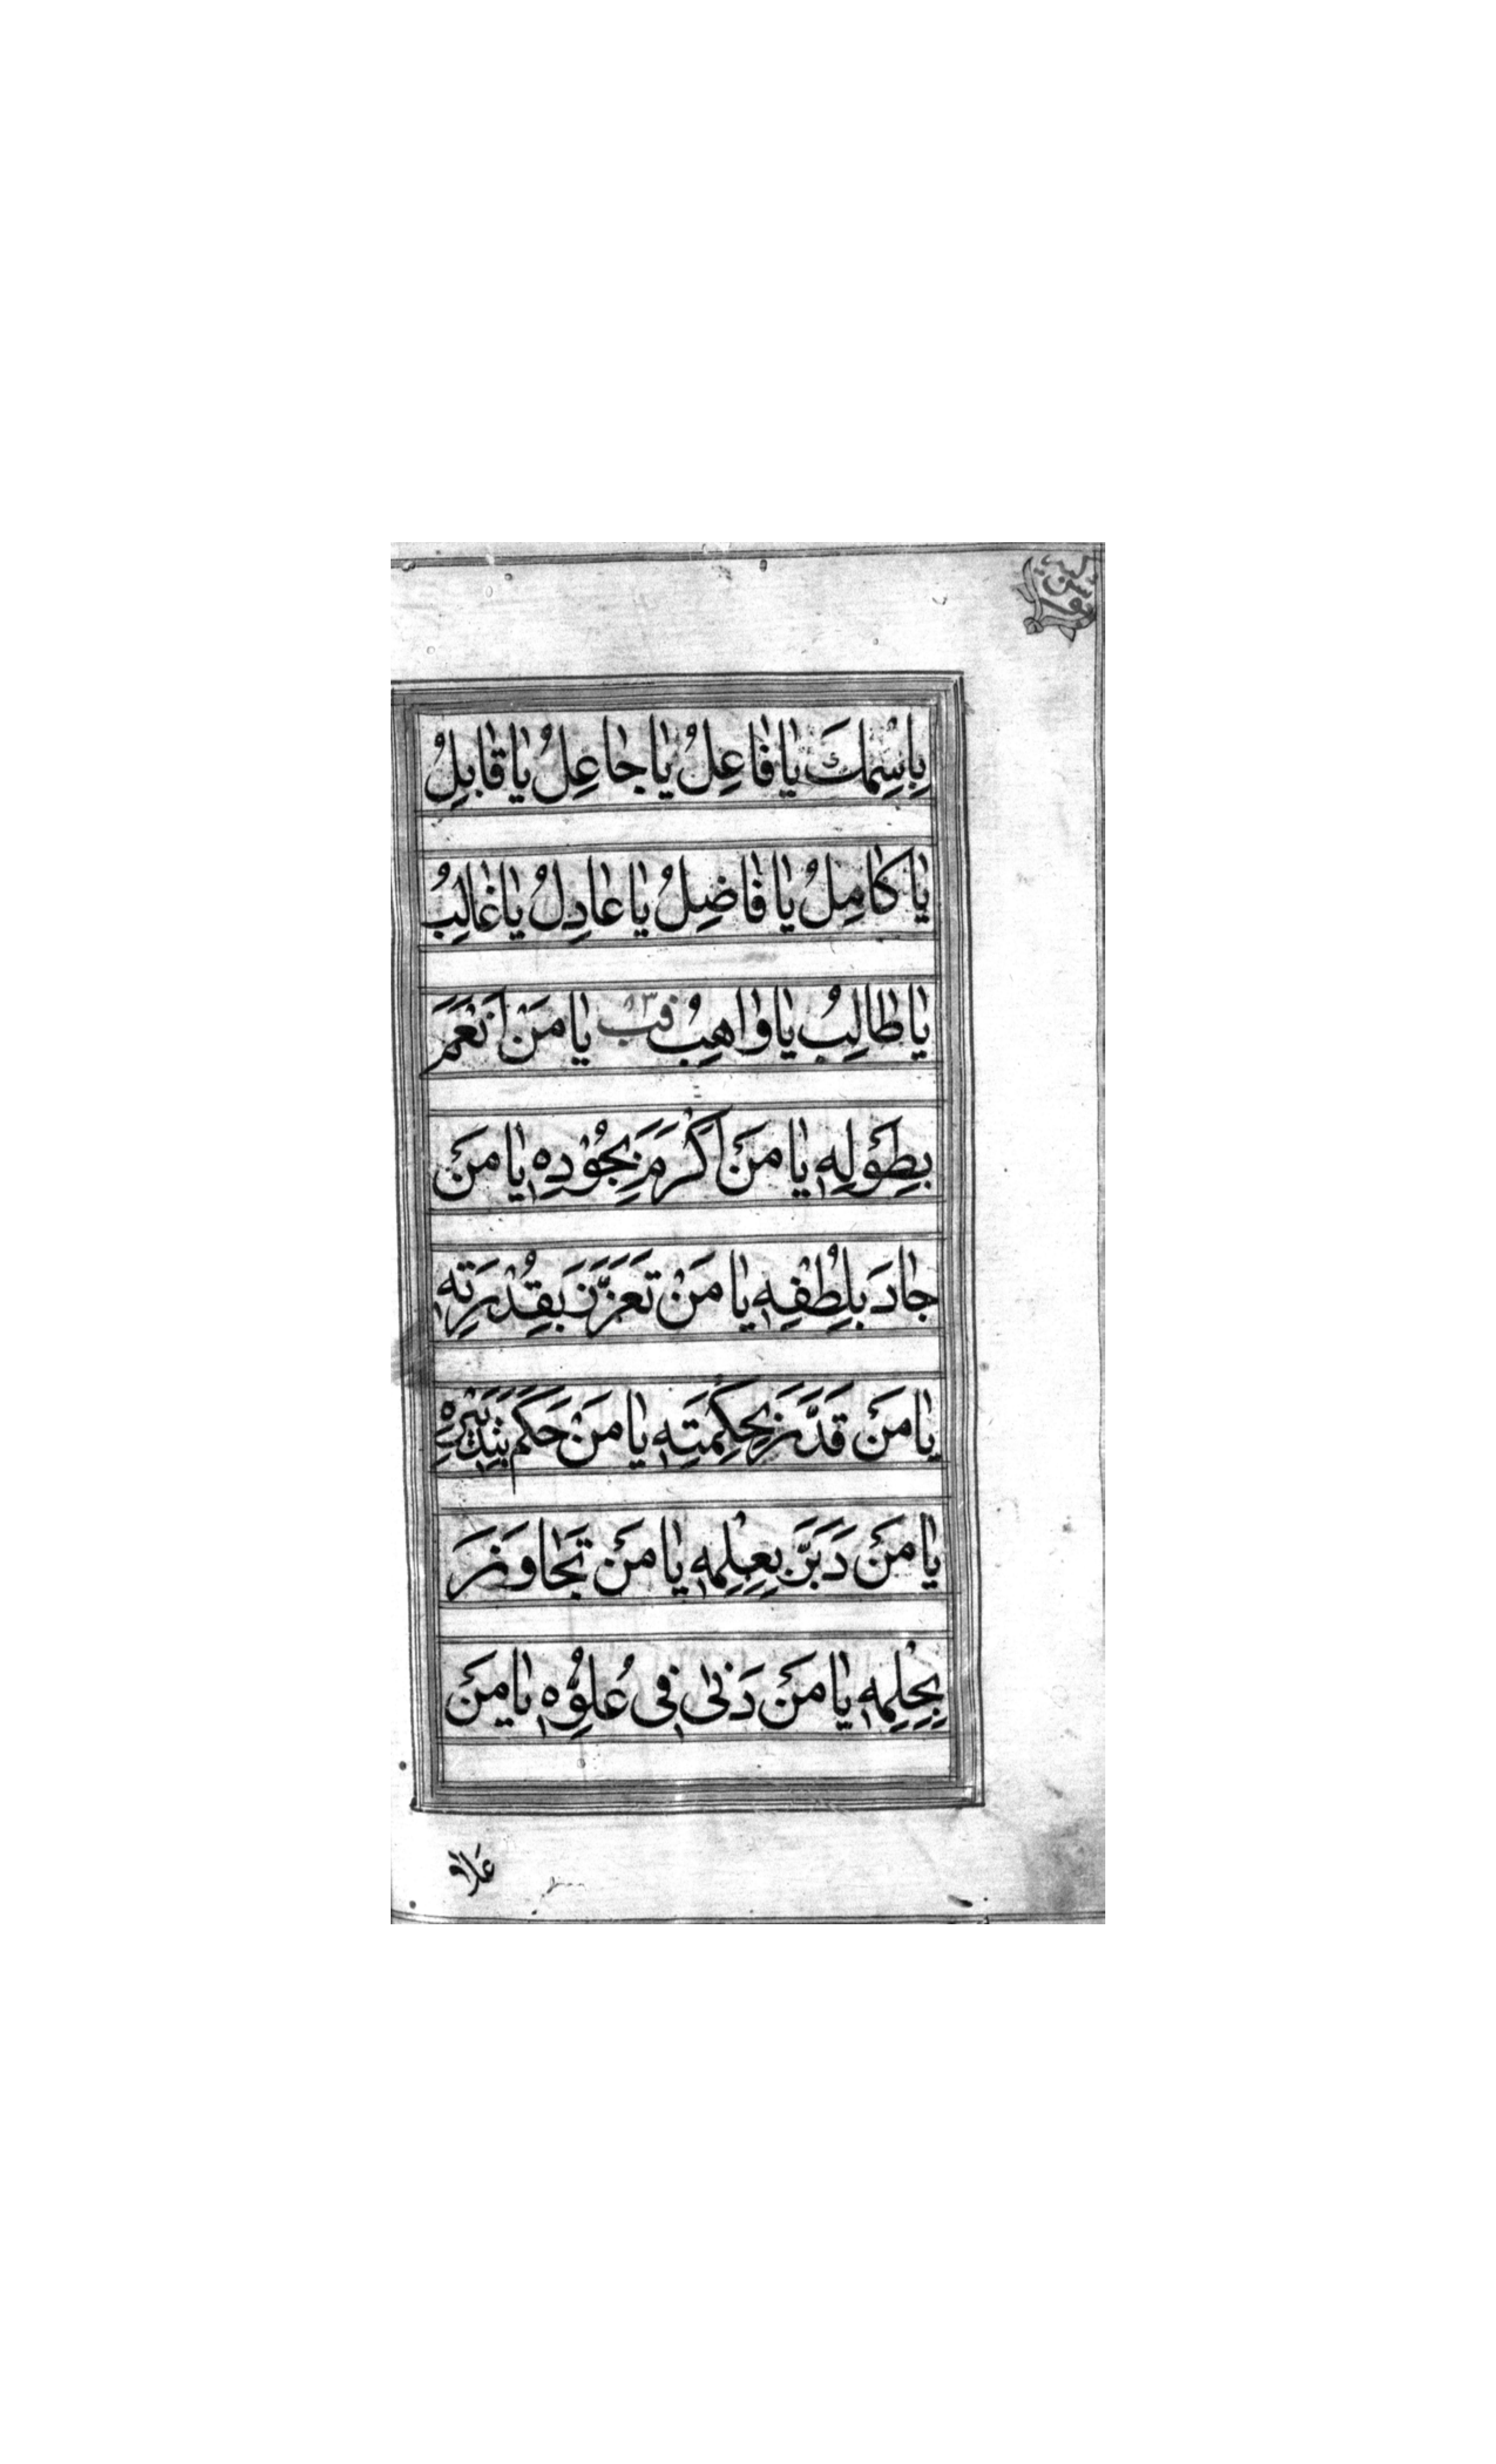 بِاسْمِكَ يَا فَاعِلُ يَا جَاعِلُ يَا قَابِلُ
يَا كَامِلُ يَا فَاضِلُ يَا عَادِلُ يَا غَالِبُ
يَا طَالِبُ يَا وَاهِبُ يَا مَنْ اَنْعَمَ
بِطَوْلِهِ يَا مَنْ اَكْرَمَ بِجُوْدِهِ يَا مَنْ
جَادَ بِلُطْفِهِ يَا مَنْ تَعَزَّزَ بِقُدْرَتِهِ
يَا مَنْ قَدَّرَ بِحِكْمَتِهِ يَا مَنْ حَكَمَ بِتَدْبِيْرِهِ
يَا مَنْ دَبَّرَ بِعِلْمِهِ يَا مَنْ تَجَاوَزَ
بِحِلْمِهِ يَا مَنْ دَنٰى فِي عُلُوِّهِ يَا مَنْ
عَلَا